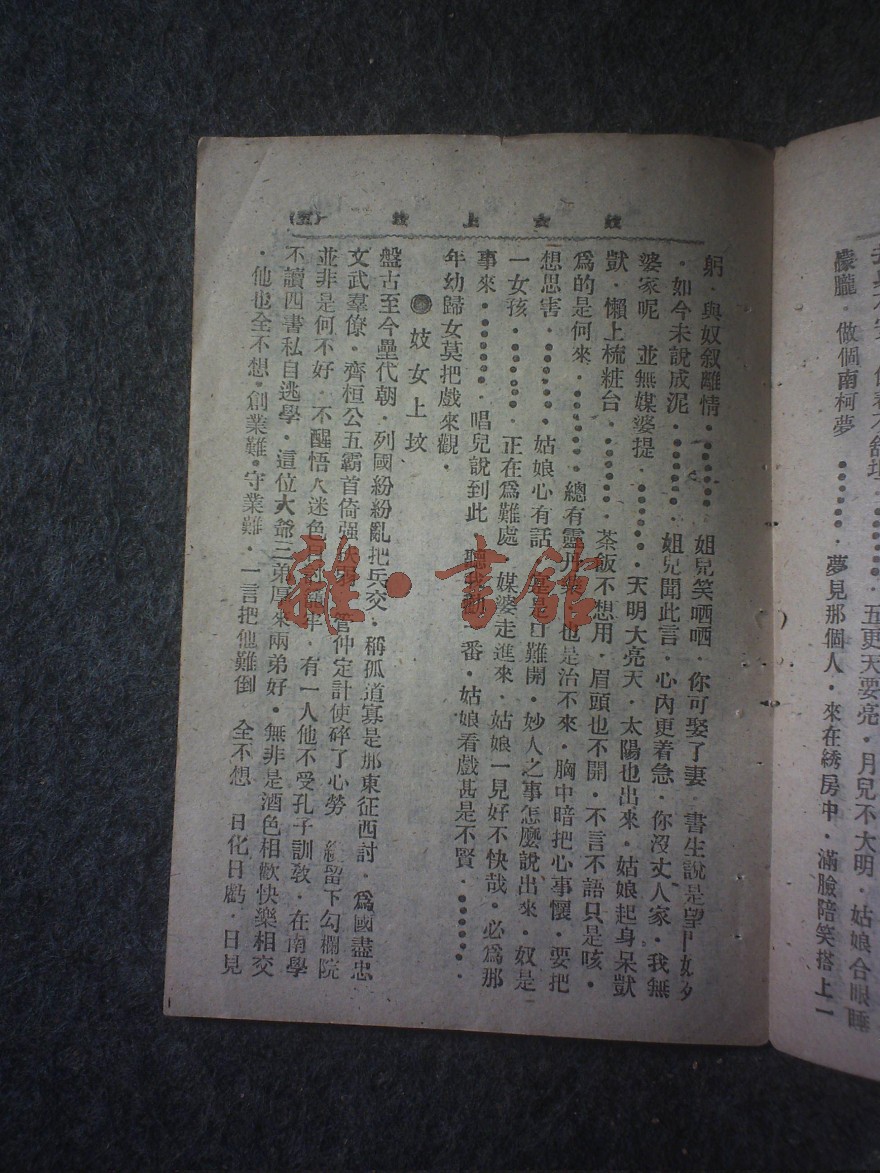 孝
不
五更天要亮．月兒不大明．姑娘合眼睡
朦朧．做個南柯夢●●●●．夢見那個人．來在綉房中．滿臉陪笑搭上一
妓女上坟 (五)
躬．與奴叙離情．●●●●●●．姐兒笑哂哂．你可娶了妻．書生說是望門
．如今未說成泥．●●●●●●．姐兒聞此言．心內更着急．你沒丈人家．我無
婆家呢 並無媒婆提．●●●●●●．天明大亮天．太陽也出來．姑娘起身呆獃
獃．懶上梳粧台．●●●●●●．茶飯不想用．眉頭也不開．不言不語只是咳．
爲的是何來．●●●●●●．總有靈丹 也是治不來．胸中暗把心事懷．要把
想思害．●●●●●●．姑娘心有話 是 口難開．妙人之事怎麼說出來．奴是
一女孩．●●●●●●．正在爲難處．媒婆走進來．姑娘一見好不快哉．必爲那
事來．●●●●●●．唱兒說到此 聽我勸 番．姑娘看戲甚是不賢．●●●●●●．
年幼歸女莫把戲來觀．
◉妓女上坟
盤古至今壘代朝．列國紛紛亂把兵交．稱孤道寡是那東征西討．爲國盡忠
文武羣僚．齊桓公五霸首倚强 管仲定計使碎了心勞 留下勾欄院
並非是何不好．不醒悟 迷色 有一人他不受孔子訓敎．在南學
不讀四書私自逃學．這位大爺三弟厚來兩弟好．無非是酒色相歡快樂相交
．他也全不想．創業難．守業難．一言把他難倒 全不想 日化日虧．日見
雜·書館